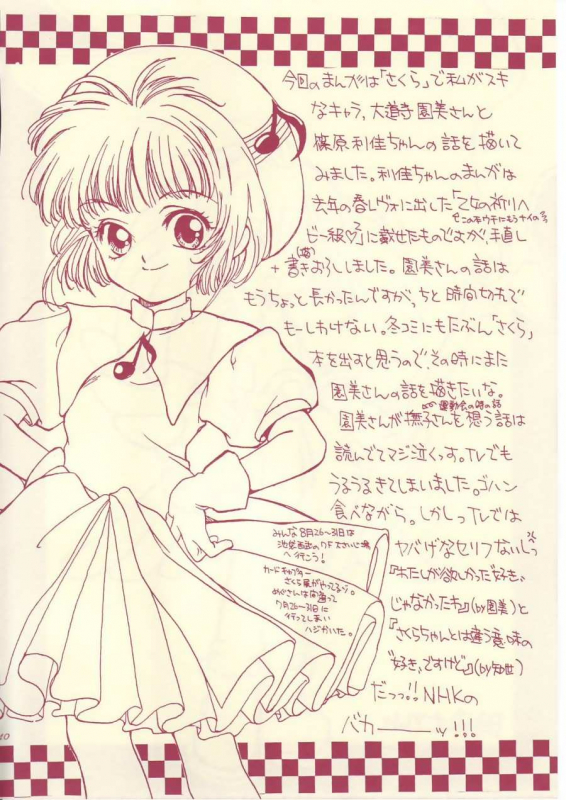 今回のまんがは「さくら」で私がスキ
なキャラ、大道寺園美さんと
篠原利佳ちゃんの話を描いて
みました。利佳ちゃんのまんがは
去年の春レヴォに出した「乙女の祈りへ
この本ウチにもうナイの
ビー級♡」に載せたものですが、手直し
+書きおろしました。園美さんの話は
もうちょっと長かったんですが、ちと時間切れで
もーしわけない。冬コミにもたぶん「さくら」
本を出すと思うので、その時にまた
園美さんの話を描きたいな。
運動会の時の話
園美さんが撫子さんを想う話は
読んでてマジ泣くっす。TVでも
うるうるきてしまいました。ゴハン
食べながら。しかしっTVでは
ヤバげなセリフないしっ
『わたしが欲しかった“好き”
じゃなかったキ』(by園美)と
『さくらちゃんとは違う意味の
“好き”ですけど』(by知世)
だっっ!!NHKの
バカ――ッ!!!
みんな8月26〜31日は
池袋西武の7Fさいじ場
へ行こう!
カードキャプター
さくら展がやってるゾ。
めぐさんは間違って
7月26〜31日に
行ってしまい
ハジかいた。